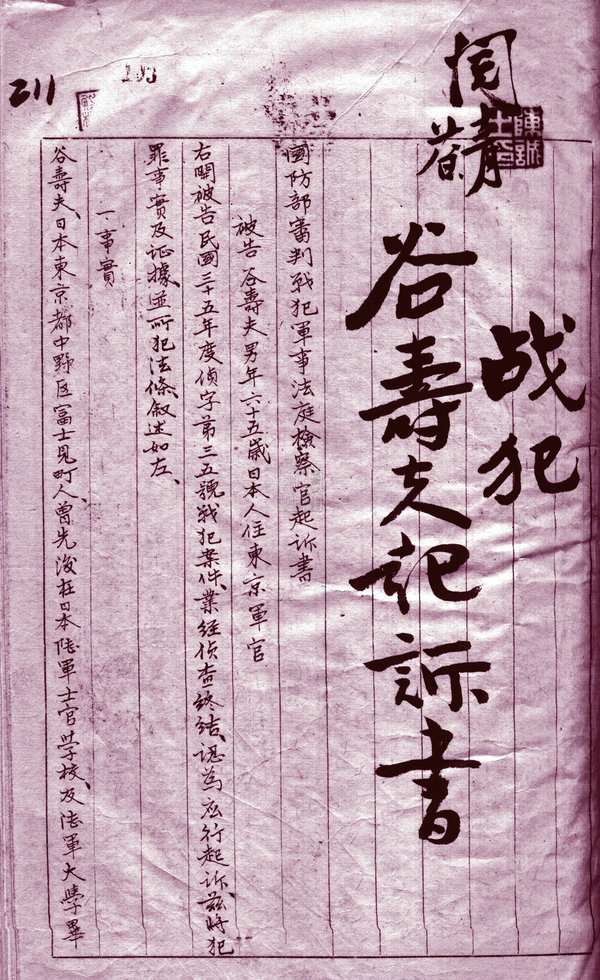 閱
战犯
谷壽夫起訴書
國防部審判戰犯軍事法庭檢察官起訴書
被告 谷壽夫男年六十五歲日本人住東京軍官
右開被告民國三十五年度偵字第三五號戰犯案件、業經偵查終結、認為應行起訴茲將犯
罪事實及证據並所犯法條敘述如左、
一事實
谷壽夫、日本東京都中野区富士見町人、曾先後在日本陸軍士官學校、及陸軍大學畢
211
103